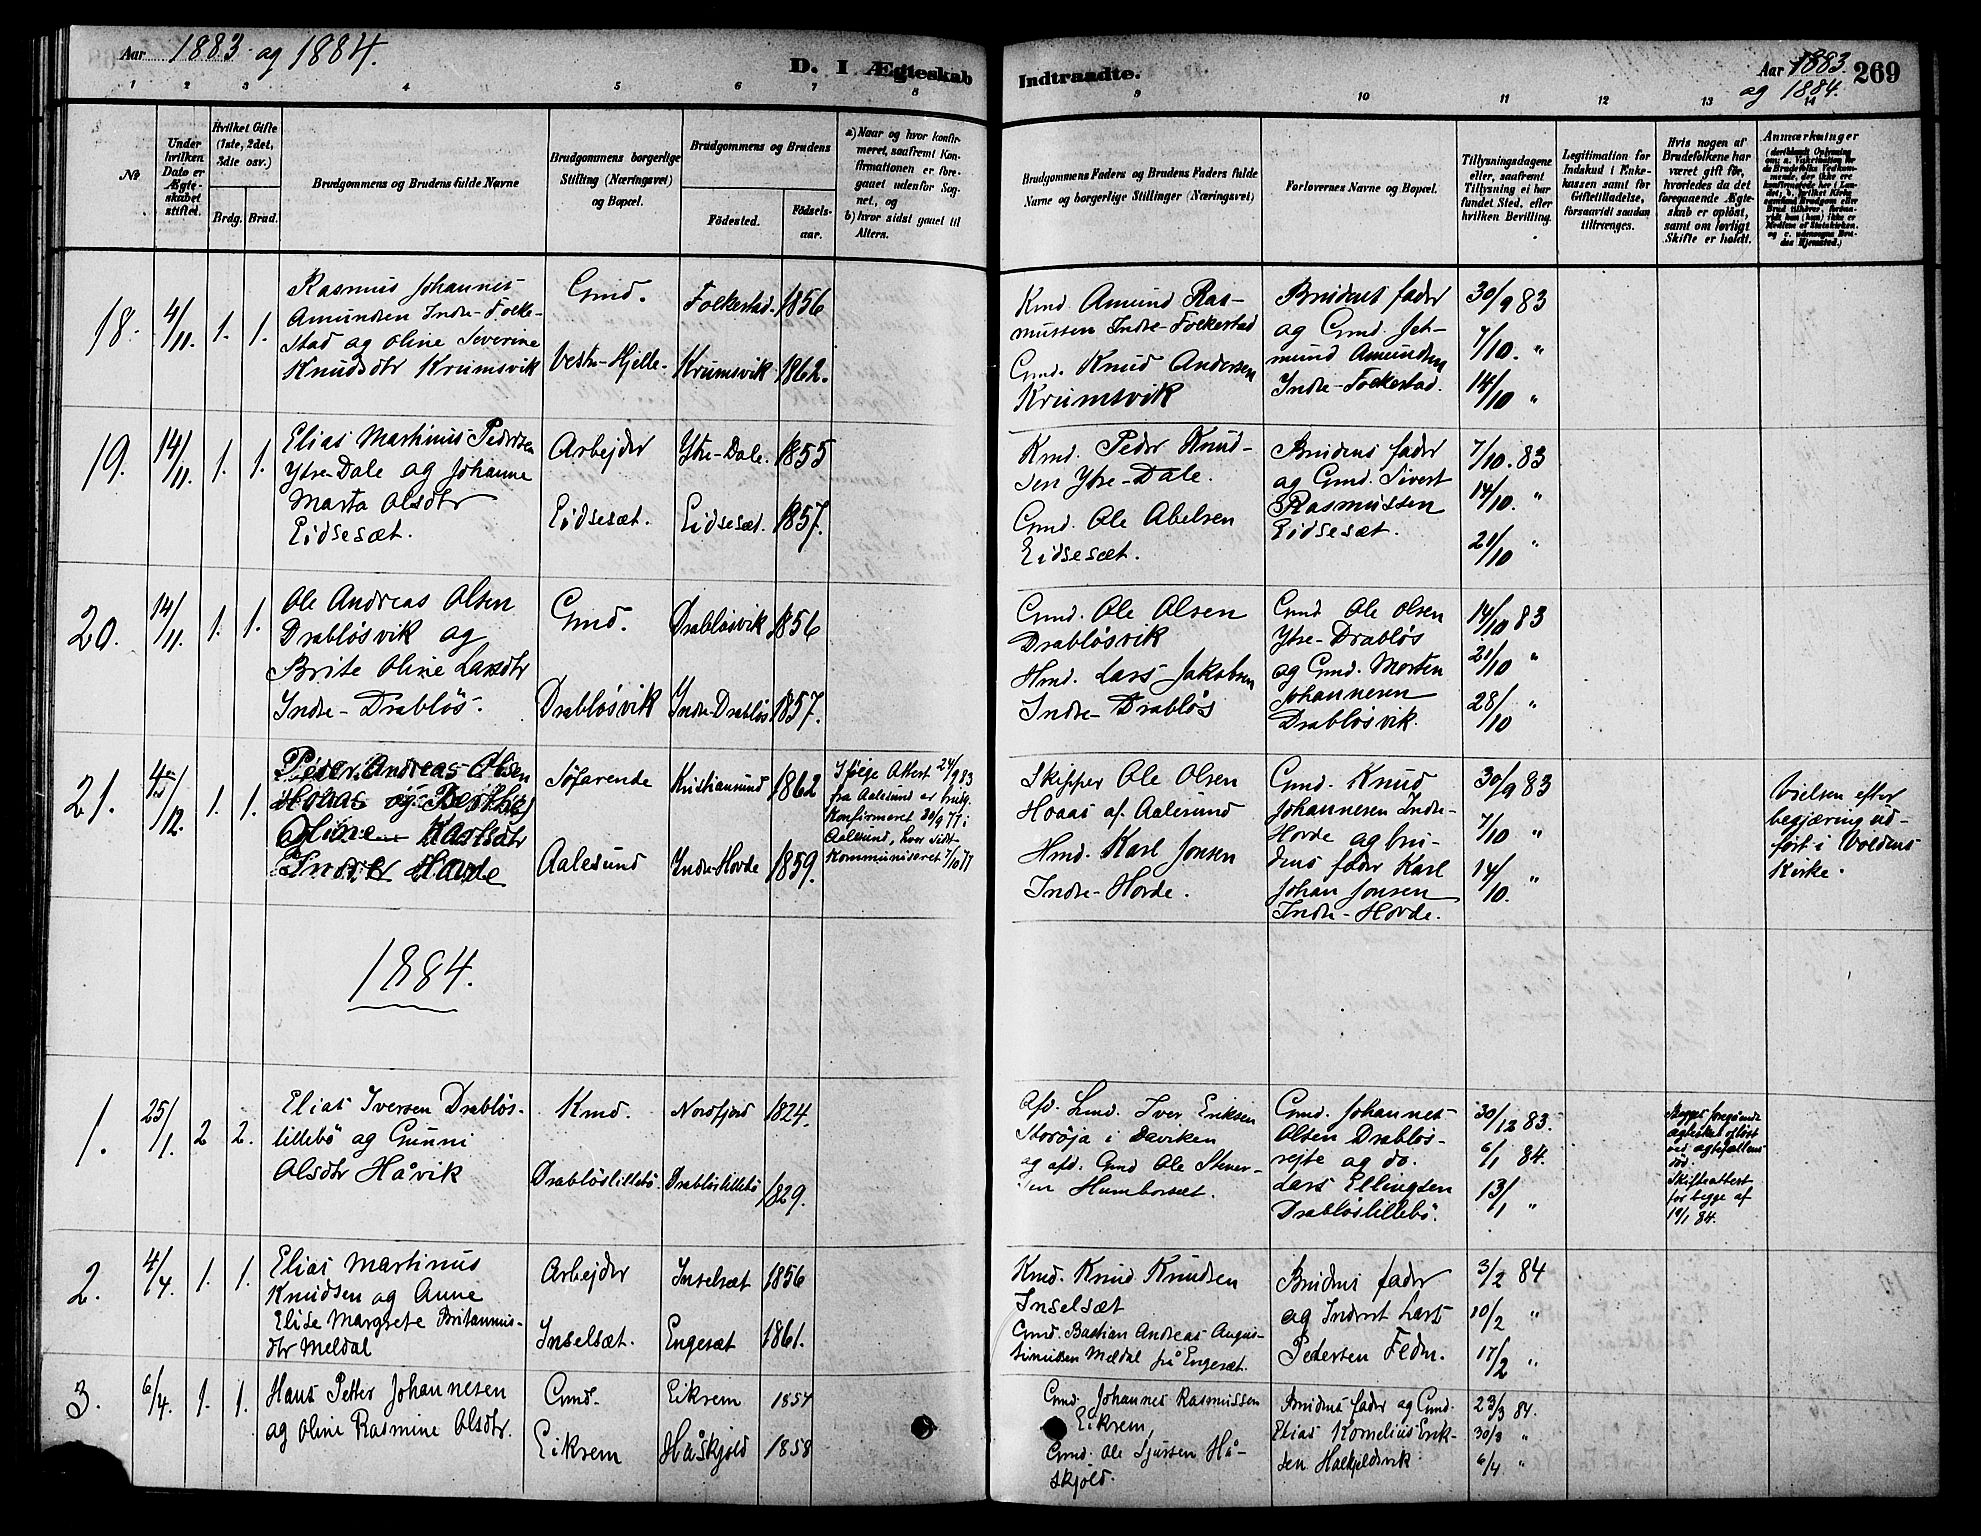 Aar 1883 og 1884.
D. I Ægteskab
Indtraadte.
Aar 1883 269
og 1884.
1 2 3 4 5 6 7 8 9 10 11 12 13 14
No
Under hvilken Dato er Ægteskabet stiftet.
Hvilket Gifte (1ste, 2det, 3die osv.)
Brdg. Brud.
Brudgommens og Brudens fulde Navne
Brudgommens borgerlige Stilling (Næringsvei) og Bopæl.
Brudgommens og Brudens
Fødested.
Fødselsaar.
a) Naar og hvor konfirmeret, saafremt Konfirmationen er foregaaet udenfor Sognet, og
b) hvor sidst gaaet til Alters.
Brudgommens Faders og Brudens Faders fulde Navne og borgerlige Stillinger (Næringsvei)
Forlovernes Navne og Bopæl.
Tillysningsdagene eller, saafremt Tillysning ei har fundet Sted, efter hvilken Bevilling.
Legitimation for Indskud i Enkekassen samt for Giftetilladelse, forsaavidt saadan tiltrænges.
Hvis nogen af Brudefolkene har været gift før, hvorledes da det foregaaende Ægteskab er opløst, samt om lovligt Skifte er holdt.
Anmærkninger
18. 4/11. 1. 1.
Rasmus Johannes
Amundsen Indre-Folke-
stad og Oline Severine
Knudsdtr Krumsvik
Gmd.
Vestre-Hjelle.
Folkestad. 1856
Krumsvik 1862.
Kmd. Amund Ras-
mussen Indre-Folkestad
Gmd. Knud Andersen
Krumsvik
Brudens fader
og Gmd. Jet-
mund Amundsen
Indre-Folkestad.
30/9 83
7/10. "
14/10 "
19. 14/11. 1. 1.
Elias Martinus Pedersen
Ytre-Dale og Johanne
Marta Olsdtr
Eidsesæt.
Arbejder
Eidsesæt.
Ytre-Dale. 1855
Eidsesæt. 1857.
Kmd. Peder Knud-
sen Ytre-Dale.
Gmd. Ole Abelsen
Eidsesæt.
Brudens fader
og Gmd. Sivert
Rasmussen
Eidsesæt.
7/10. 83
14/10. "
21/10 "
20. 14/11. 1. 1.
Ole Andreas Olsen
Drabløsvik og
Brite Oline Larsdtr
Indre-Drabløs.
Gmd.
Drabløsvik
Drabløsvik 1856
Indre-Drabløs 1857.
Gmd. Ole Olsen
Drabløsvik
Hmd. Lars Jakobsen
Indre-Drabløs
Gmd Ole Olsen
Ytre-Drabløs
og Gmd. Morten
Johannesen
Drabløsvik.
14/10 83
21/10 "
28/10 "
21. /12. 1. 1.
Peder Andreas Olsen
Hoaas og Berthe
Oline Karlsdtr
Indre Hovde
Søfarende
Aalesund
Kristiansund 1862
Indre-Hovde 1859.
Ifølge Attest 24/9 83
fra Aalesund er brudg.
Konfirmeret 30/9 77 i
Aalesund, hvor sidst
Kommuniseret 7/10 77
Skipper Ole Olsen
Hoaas af Aalesund
Hmd. Karl Jonsen
Indre-Hovde.
Gmd. Knud
Johannesen Indre-
Hovde og bru-
dens fader Karl
Johan Jonsen
Indre-Hovde.
30/9 83
7/10 "
14/10. "
Vielsen efter
begjæring ud-
ført i Voldens
Kirke.
1884.
1. 25/1. 2 2.
Elias Iversen Drabløs-
lillebø og Gunni
Olsdtr Håvik
Kmd.
Drabløslillebø.
Nordfjord 1824.
Drabløslillebø 1829.
Afd. Lmd. Iver Eriksen
Storøja i Daviken
og afd. Gmd Ole Stener-
sen Humborsæt.
Gmd. Johannes
Olsen Drabløs-
rejte og do.
Lars Ellingsen
Drabløslillebø.
30/12 83.
6/1 84.
13/1 "
Begges foregående
ægteskab opløst
ved ægtefællens
død.
Skifteattest
for begge af
19/1 84.
2. 4/4. 1. 1.
Elias Martinus
Knudsen og Anne
Elise Margrete
dtr Meldal
Arbejder
Inselsæt.
Inselsæt 1856
Engesæt 1861.
Kmd. Knud Knudsen
Inselsæt
Gmd. Bastian Andreas Augus-
tinussen Meldal frå Engesæt.
Brudens fader
og Inderst Lars
Pedersen Fedn.
3/2 84
10/2 "
17/2 "
3. 6/4. 1. 1.
Hans Petter Johannesen
og Oline Rasmine Olsdtr.
Gmd.
Eikrem
Eikrem 1857
Håskjold 1858
Gmd. Johannes Rasmussen
Eikrem,
Gmd. Ole Sjursen Hå-
skjold.
Brudens fader og Gmd.
Elias Kornelius Erik-
sen Halkjeldsvik
23/3 84.
30/3 "
6/4 "